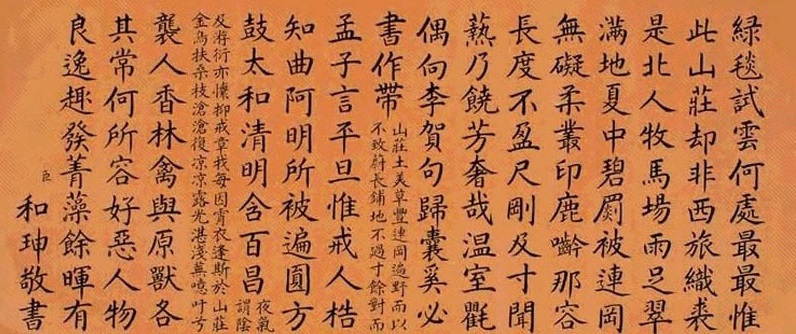 綠毯試雲何處最最惟
此山莊却非西旅織裘
是北人牧馬場雨足翠
滿地夏中碧罽被連岡
無礙柔叢印鹿齝那容
長度不盈尺剛及寸聞
爇乃饒芳奢哉溫室氍
偶向李賀句歸囊奚必
書作帶
山莊土美草豐連岡遍野而以
不致蔚長鋪地不過寸餘對而
孟子言平旦惟戒人梏
知曲阿明所被遍圓方
鼓太和清明含百昌
夜氣
謂陰
及將衍亦懷抑戒章我每因宵衣逢斯於山莊
金烏扶桑枝滄滄復凉凉露光湛淺蕪噫叶芳
襲人香林禽與原獸各
其常何所容好惡人物
良逸趣發菁藻餘暉有
臣和珅敬書